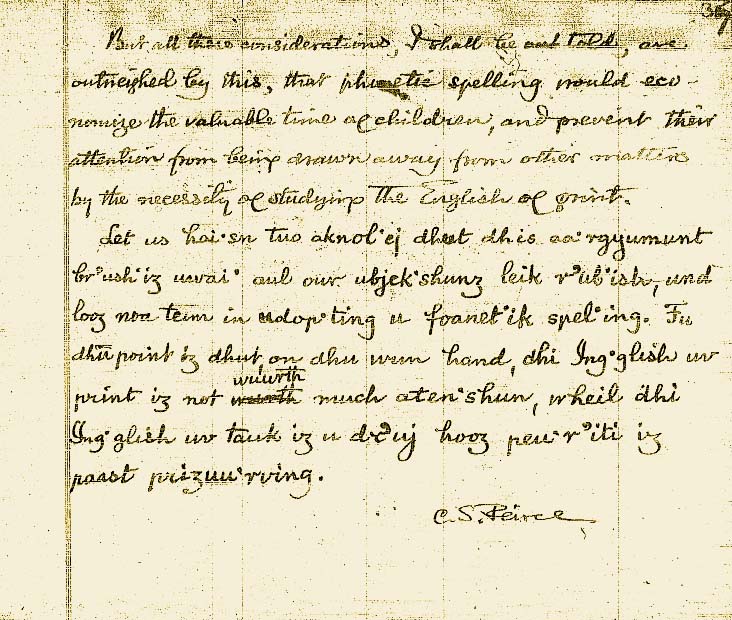 But all these considerations, I shall be told, are
outweighed by this, that phonetic spelling would eco-
nomize the valuable time of children, and prevent their
attention from being drawn away from other matters
by the necessity of studying the English of print.
Let us hai·sn tuo aknol·ej dhat dhis aa·rgyumunt
br'ush·iz uwai· aul our ubjek·shunz leik r'ub·ish, und
looz noa teim in udop·ting u foanet·ik spel·ing. Fu
dhu point iz dhut, on dhu wun hand, dhi Ing·glish uv
wuurth
print iz not much aten·shun, wheil dhi
Ing·glish uv tauk iz u hooz peu·r'iti iz
paast prizuu·rving.
C. S. Peirce